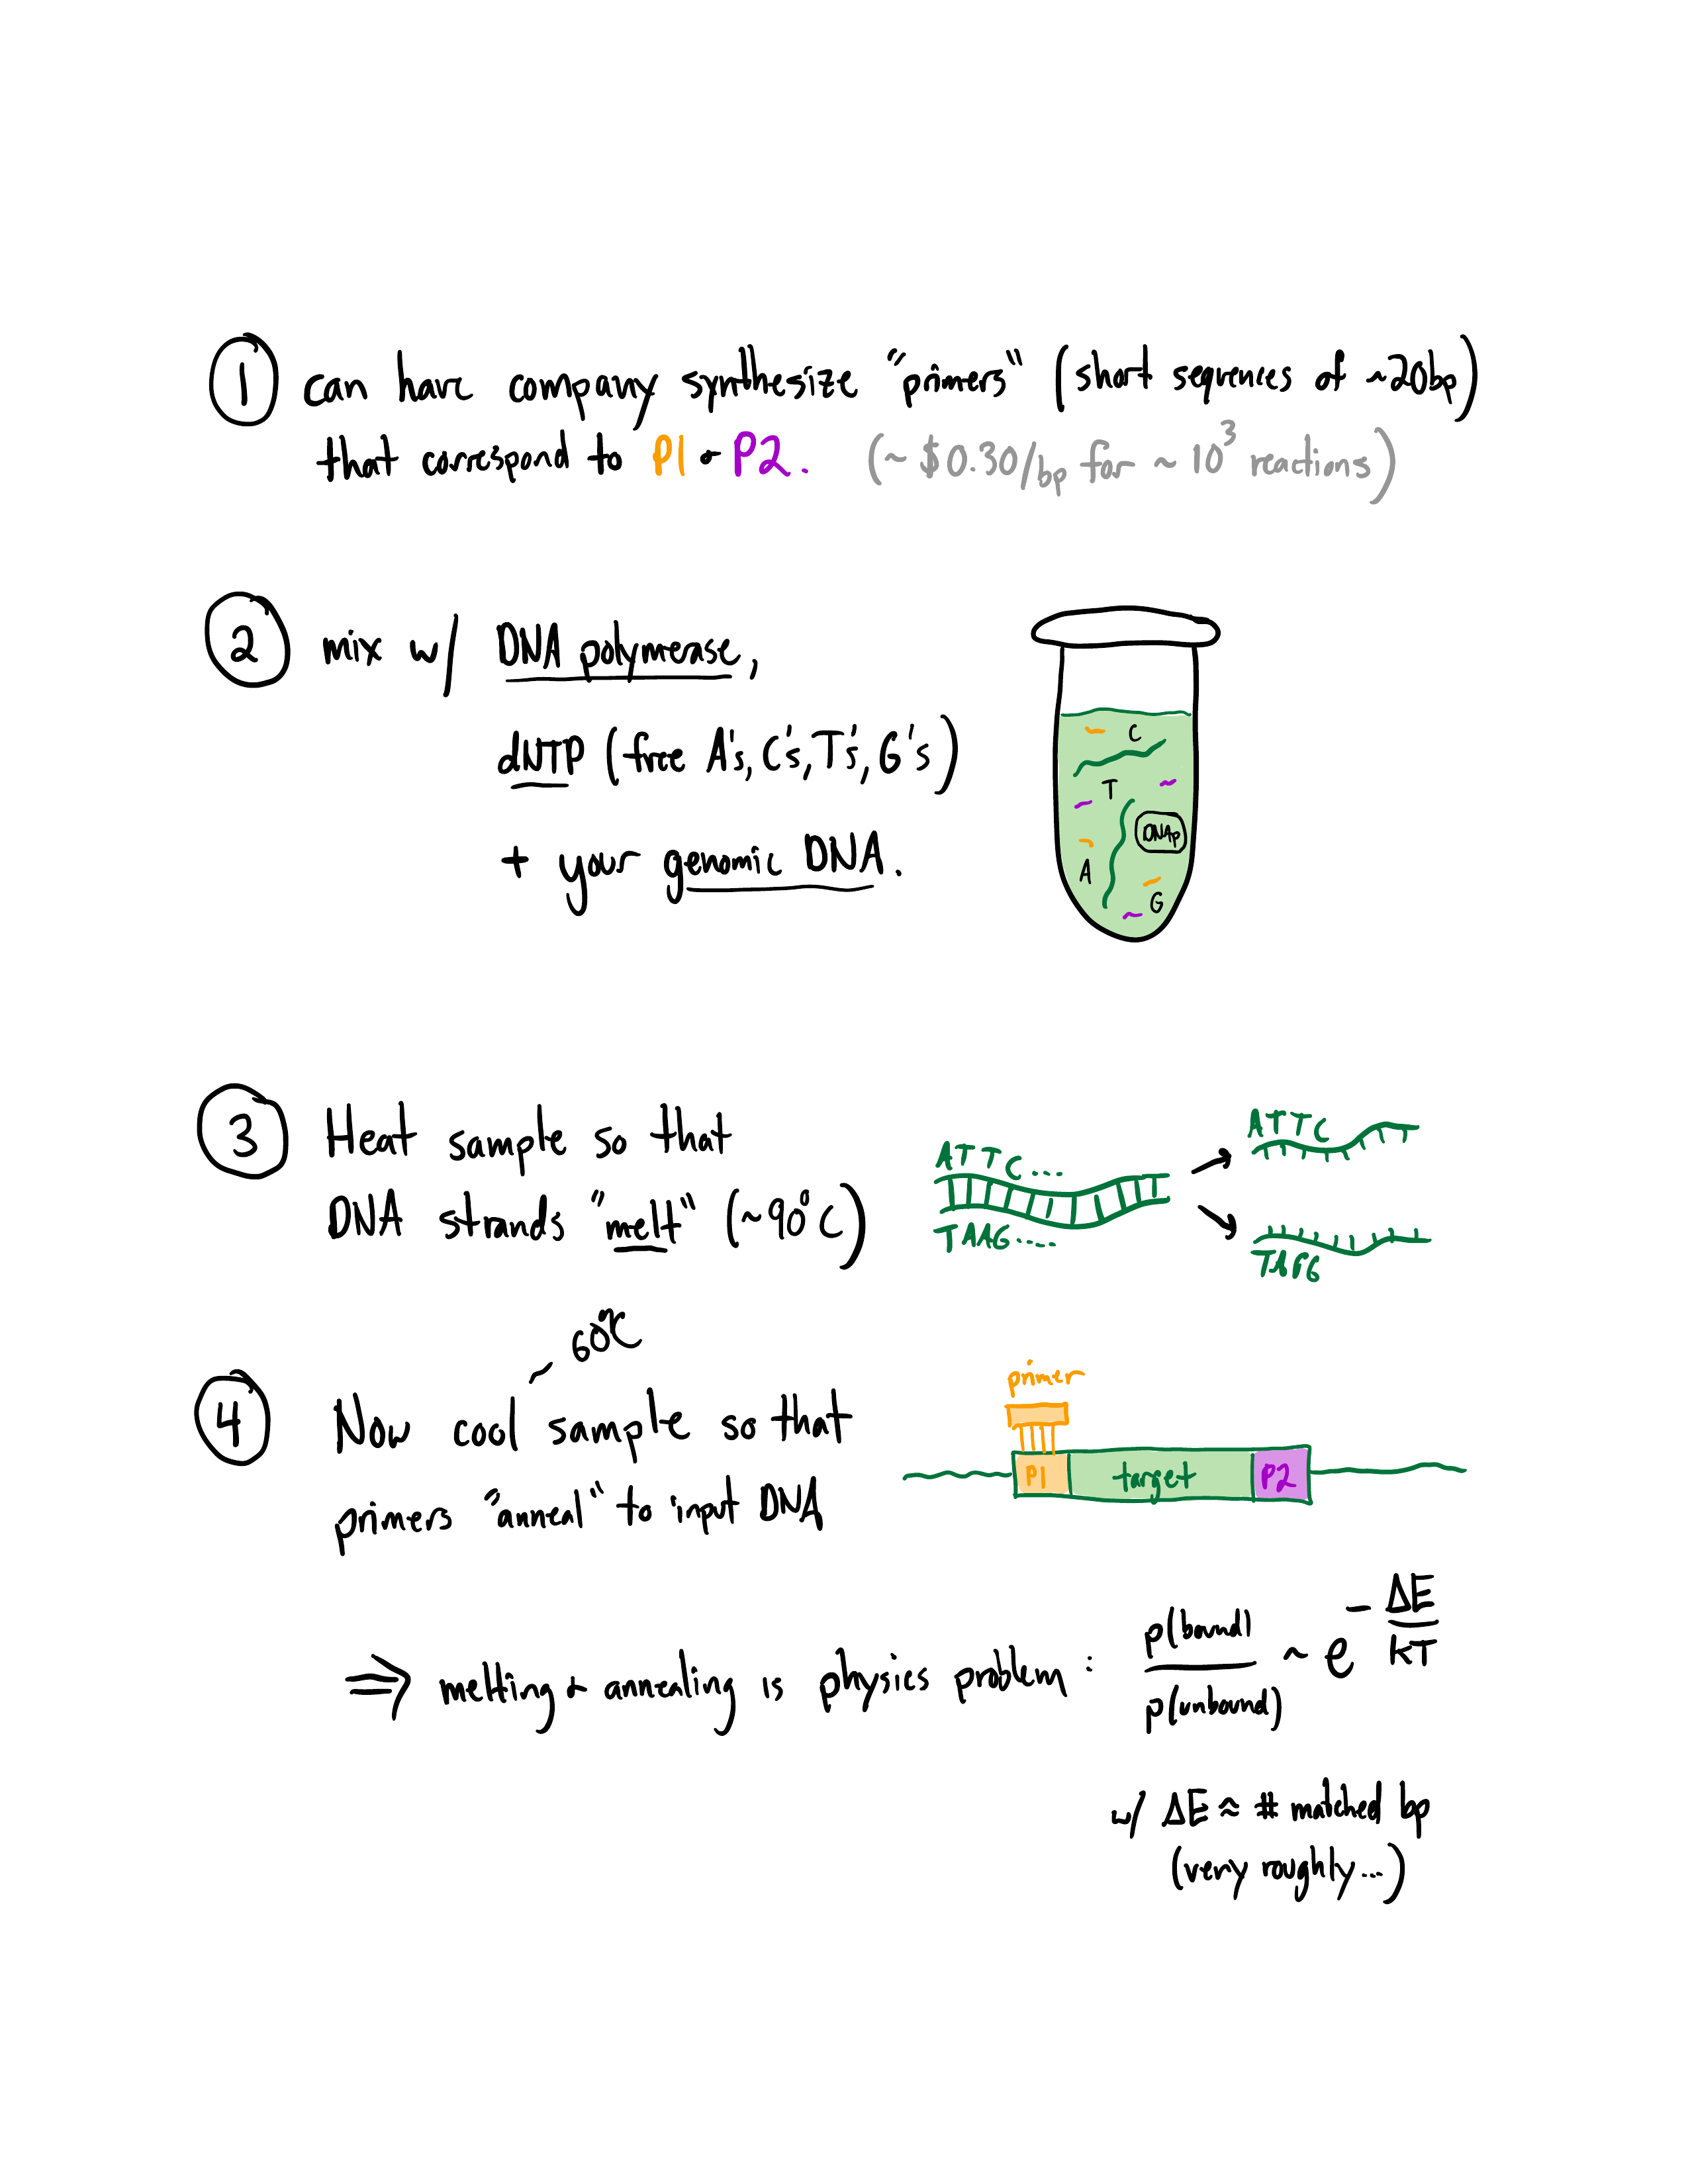 ① can have company synthesize "primers" (short sequences of ~20bp)
that correspond to P1 & P2. (~ $0.30/bp for ~ 10³ reactions)
② mix w/ DNA polymerase,
dNTP (free A's, C's, T's, G's)
+ your genomic DNA.
C
T
DNAp
A
G
③ Heat sample so that
DNA strands "melt" (~90°C)
ATTC...
TAAG....
ATTC
TAAG
~ 60°C
④ Now cool sample so that
primers "anneal" to input DNA
primer
P1 target P2
⇒ melting & annealing is physics problem: p(bound)/p(unbound) ~ e^(-ΔE/kT)
w/ ΔE ≈ # matched bp
(very roughly...)